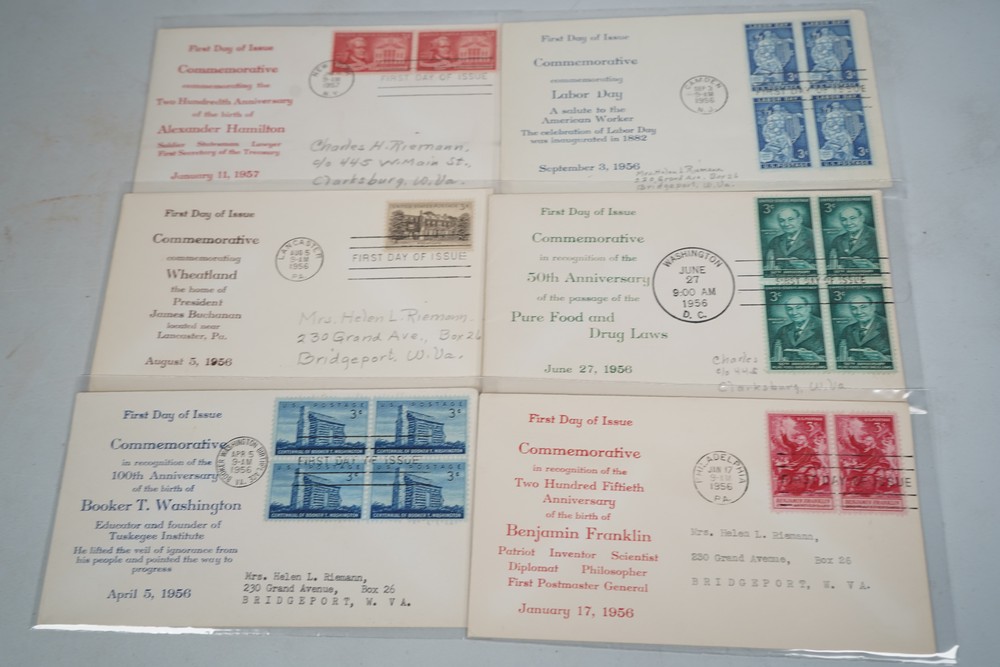 First Day of Issue
Commemorative
commemorating the
Two Hundredth Anniversary
of the birth of
Alexander Hamilton
Soldier Statesman Lawyer
First Secretary of the Treasury
January 11, 1957
1957
N.Y.
FIRST DAY OF ISSUE
Charles H. Riemann,
c/o 445 W. Main St.,
Clarksburg, W. Va.
First Day of Issue
Commemorative
commemorating
Labor Day
A salute to the
American Worker
The celebration of Labor Day
was inaugurated in 1882
September 3, 1956
CAMDEN
SEP 3
9-AM
1956
N.J.
LABOR DAY
LABOR DAY
3¢
3¢
FIRST DAY OF ISSUE
LABOR DAY
LABOR DAY
3¢
3¢
U.S. POSTAGE
U.S. POSTAGE
Mrs. Helen L. Riemann
230 Grand Ave., Box 26
Bridgeport, W. Va.
First Day of Issue
Commemorative
commemorating
Wheatland
the home of
President
James Buchanan
located near
Lancaster, Pa.
August 5, 1956
LANCASTER
AUG 5
9-AM
1956
PA.
3¢
FIRST DAY OF ISSUE
Mrs. Helen L. Riemann
230 Grand Ave., Box 26
Bridgeport, W. Va.
First Day of Issue
Commemorative
in recognition of the
50th Anniversary
of the passage of the
Pure Food and
Drug Laws
June 27, 1956
WASHINGTON
JUNE
27
9:00 AM
1956
D. C.
3¢
3¢
FIRST DAY OF ISSUE
3¢
3¢
Charles
c/o 445
Clarksburg, W. Va
First Day of Issue
Commemorative
in recognition of the
100th Anniversary
of the birth of
Booker T. Washington
Educator and founder of
Tuskegee Institute
He lifted the veil of ignorance from
his people and pointed the way to
progress
April 5, 1956
BOOKER WASHINGTON BIRTHPLACE
APR 5
9-AM
1956
VA.
U.S. POSTAGE 3¢
U.S. POSTAGE 3¢
CENTENNIAL OF BOOKER T. WASHINGTON
CENTENNIAL OF BOOKER T. WASHINGTON
FIRST DAY OF ISSUE
3¢
3¢
CENTENNIAL OF BOOKER T. WASHINGTON
CENTENNIAL OF BOOKER T. WASHINGTON
Mrs. Helen L. Riemann,
230 Grand Avenue, Box 26
BRIDGEPORT, W. VA.
First Day of Issue
Commemorative
in recognition of the
Two Hundred Fiftieth
Anniversary
of the birth of
Benjamin Franklin
Patriot Inventor Scientist
Diplomat Philosopher
First Postmaster General
January 17, 1956
PHILADELPHIA
JAN 17
9-AM
1956
PA.
3¢
3¢
FIRST DAY OF ISSUE
BENJAMIN FRANKLIN
BENJAMIN FRANKLIN
Mrs. Helen L. Riemann,
230 Grand Avenue, Box 26
BRIDGEPORT, W. VA.